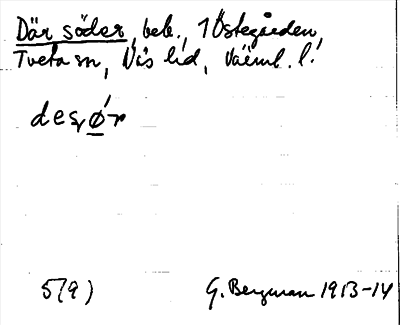 Där söder, beb., 1 Östegården,
Tveta sn, Vis hd, Värml. l.
5(9)
G. Bergman 1913-14